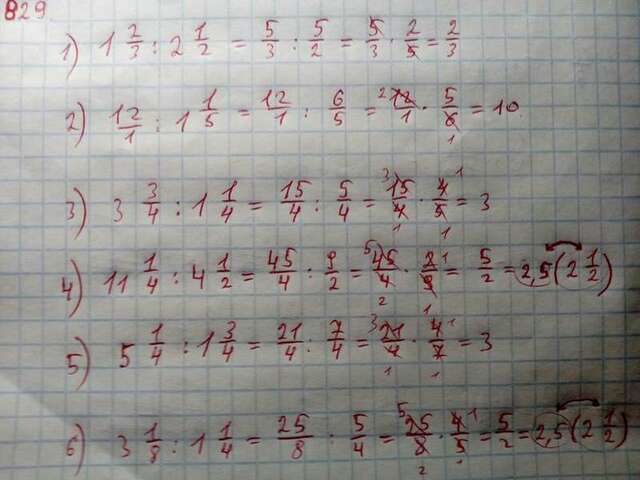 829.
1) 1 2/3 : 2 1/2 = 5/3 : 5/2 = 5/3 · 2/5 = 2/3
2) 12/1 : 1 1/5 = 12/1 : 6/5 = 2 12/1 · 5/6 1 = 10
3) 3 3/4 : 1 1/4 = 15/4 : 5/4 = 3 15/4 1 · 4 1/5 1 = 3
4) 11 1/4 : 4 1/2 = 45/4 : 9/2 = 5 45/4 2 · 2 1/9 1 = 5/2 = 2,5 (2 1/2)
5) 5 1/4 : 1 3/4 = 21/4 : 7/4 = 3 21/4 1 · 4 1/7 1 = 3
6) 3 1/8 : 1 1/4 = 25/8 : 5/4 = 5 25/8 2 · 4 1/5 1 = 5/2 = 2,5 (2 1/2)